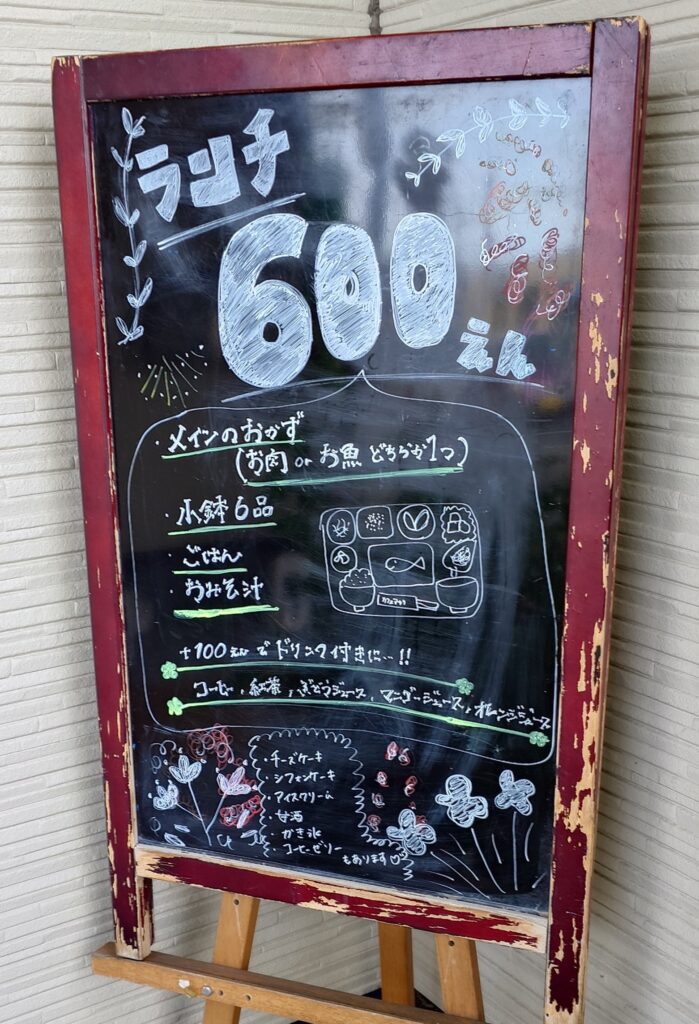 ランチ
600えん
・メインのおかず
(お肉 or お魚 どちらか1つ)
・小鉢6品
・ごはん
・おみそ汁
+100えんでドリンク付きに…!!
コーヒー、紅茶、ぶどうジュース、マンゴージュース、オレンジジュース
・チーズケーキ
・シフォンケーキ
・アイスクリーム
・甘酒
・かき氷
・コーヒーゼリー
もあります♡